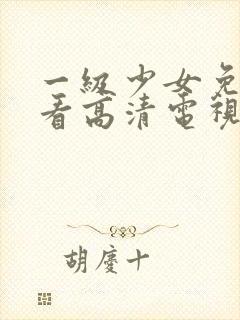 一級少女免
看高清電視
胡慶十